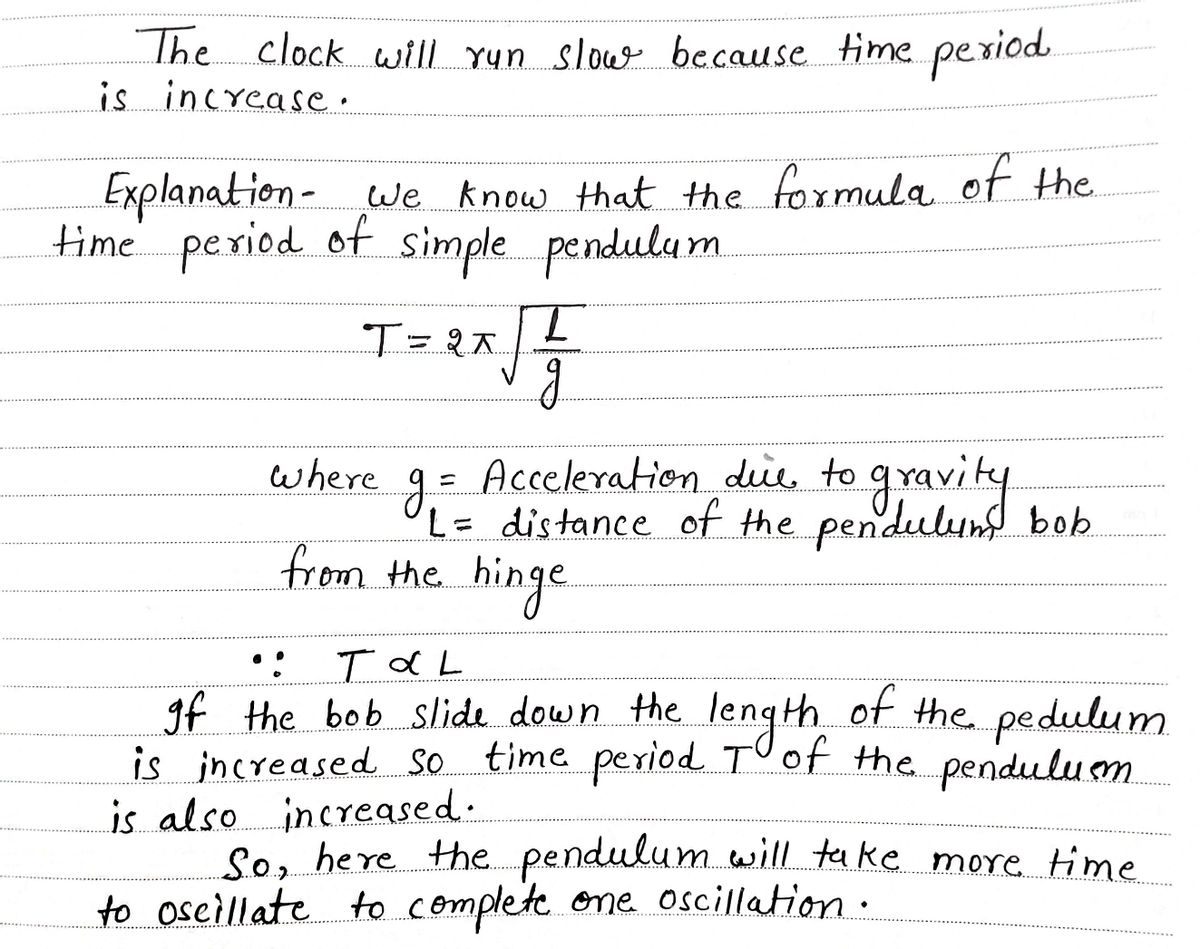 The clock will run slow because time period
is increase.
Explanation- We know that the formula of the
time period of simple pendulum
T = 2π √(L/g)
where g = Acceleration due to gravity
L = distance of the pendulums bob
from the hinge
∵ T ∝ L
If the bob slide down the length of the pedulum
is increased so time period T of the penduluem
is also increased.
So, here the pendulum will take more time
to oscillate to complete one oscillation.